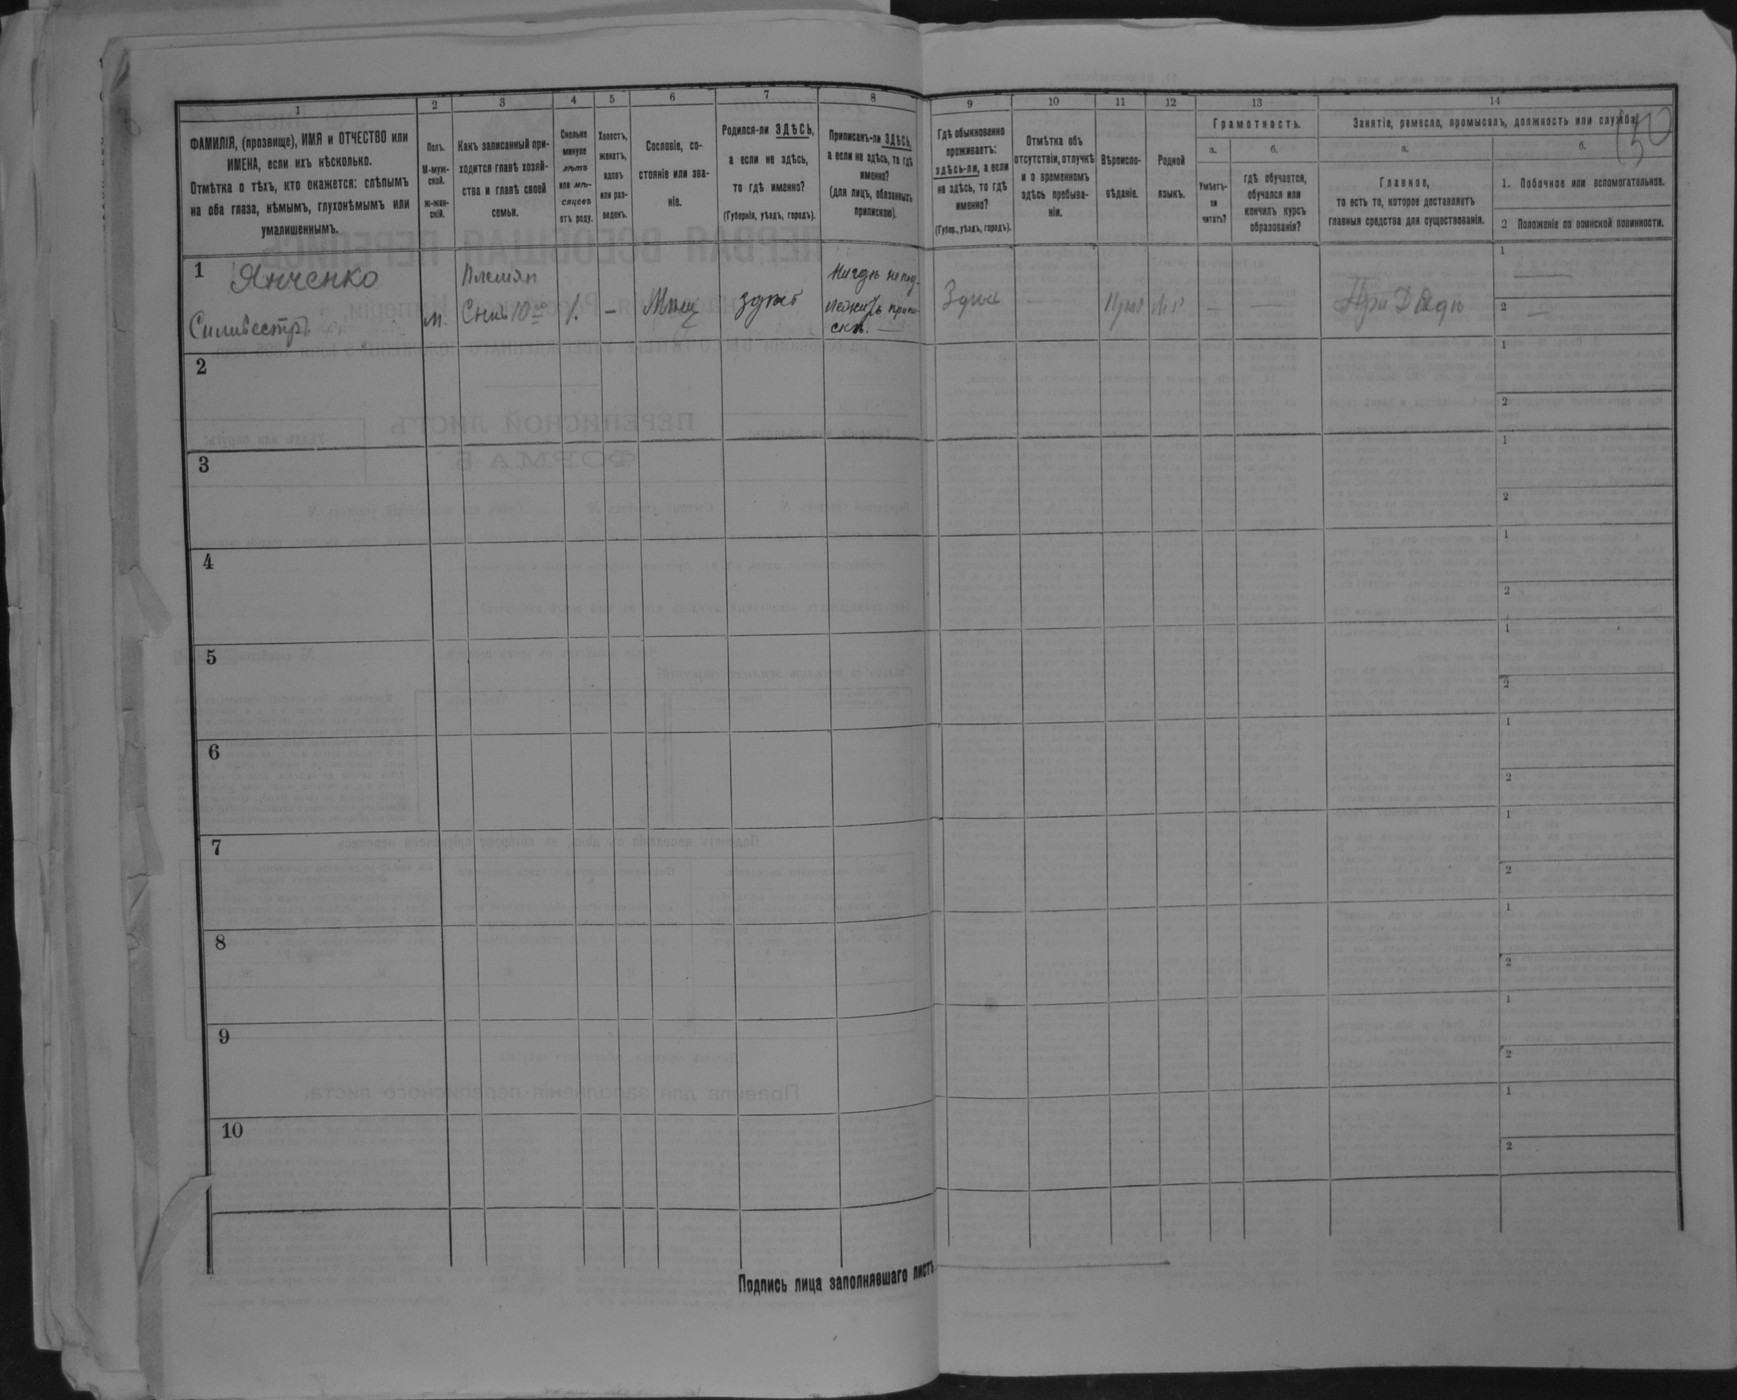 1
ФАМИЛІЯ, (прозвище), ИМЯ и ОТЧЕСТВО или
ИМЕНА, если ихъ нѣсколько.
Отмѣтка о тѣхъ, кто окажется: слѣпымъ
на оба глаза, нѣмымъ, глухонѣмымъ или
умалишеннымъ.
2
Полъ.
М-муж-
ской.
ж-жен-
скій.
3
Какъ записанный при-
ходится главѣ хозяй-
ства и главѣ своей
семьи.
4
Сколько
минуло
лѣтъ
или мѣ-
сяцевъ
отъ роду.
5
Холостъ,
женатъ,
вдовъ
или раз-
веденъ.
6
Сословіе, со-
стояніе или зва-
ніе.
7
Родился-ли ЗДѢСЬ,
а если не здѣсь,
то гдѣ именно?
(Губернія, уѣздъ, городъ).
8
Приписанъ-ли ЗДѢСЬ,
а если не здѣсь, то гдѣ
именно?
(для лицъ, обязанныхъ
припискою).
9
Гдѣ обыкновенно
проживаетъ:
здѣсь-ли, а если
не здѣсь, то гдѣ
именно?
(Губер., уѣздъ, городъ).
10
Отмѣтка объ
отсутствіи, отлучкѣ
и о временномъ
здѣсь пребыва-
ніи.
11
Вѣроиспо-
вѣданіе.
12
Родной
языкъ.
13
Грамотность.
а.
Умѣетъ-
ли
читать?
б.
гдѣ обучается,
обучался или
кончилъ курсъ
образованія?
14
Занятіе, ремесло, промыселъ, должность или служба.
а.
Главное,
то есть то, которое доставляетъ
главныя средства для существованія.
б.
1. Побочное или вспомогательное.
2 Положеніе по воинской повинности.
1
Янченко
Силивестръ
м.
Племян
Сынъ 10го
1.
–
Мѣщ
здѣсь
Нигдѣ не под-
лежитъ припи-
ски.
Здѣсь
—
Прав
—
—
При Дѣдѣ
1
2
2
1
2
3
1
2
4
1
2
5
1
2
6
1
2
7
1
2
8
1
2
9
1
2
10
1
2
Подпись лица заполнявшаго листъ